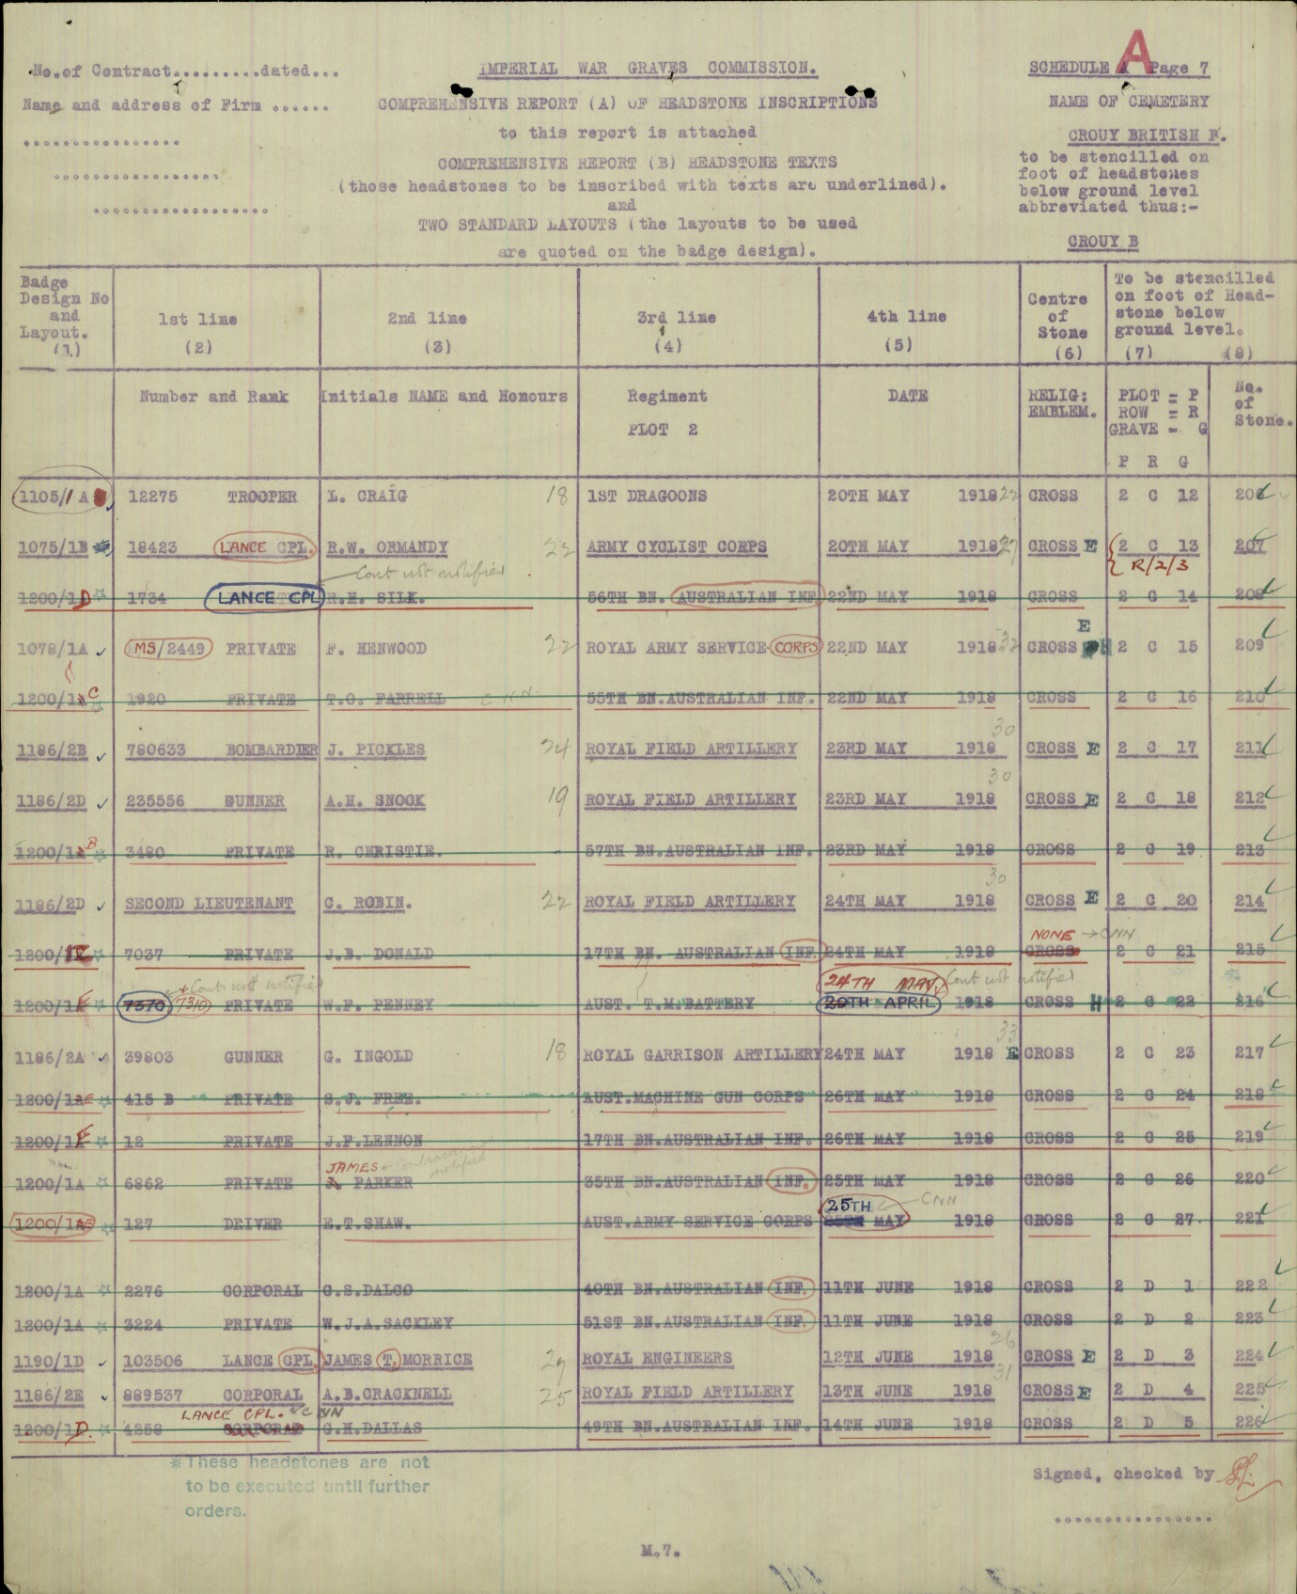 A
No.of Contract.........dated...
IMPERIAL WAR GRAVES COMMISSION.
SCHEDULE A Page 7
Name and address of Firm ......
COMPREHENSIVE REPORT (A) OF HEADSTONE INSCRIPTIONS
NAME OF CEMETERY
to this report is attached
CROUY BRITISH F.
COMPREHENSIVE REPORT (B) HEADSTONE TEXTS
(those headstones to be inscribed with texts are underlined).
and
TWO STANDARD LAYOUTS (the layouts to be used
are quoted on the badge design).
to be stencilled on
foot of headstones
below ground level
abbreviated thus:-
CROUY B
Badge Design No and Layout. (1)
1st line (2)
2nd line (3)
3rd line (4)
4th line (5)
Centre of Stone (6)
To be stencilled on foot of Head-stone below ground level. (7) (8)
Number and Rank
Initials NAME and Honours
Regiment
PLOT 2
DATE
RELIG: EMBLEM.
PLOT = P
ROW = R
GRAVE - G
P R G
No. of Stone.
1105/1A 12275 TROOPER L. CRAIG 18 1ST DRAGOONS 20TH MAY 1918 CROSS 2 C 12 206
1075/1B 18423 LANCE CPL. R.W. ORMANDY 22 ARMY CYCLIST CORPS 20TH MAY 1918 CROSS E 2 C 13 207
R/2/3
Cont not notified
1200/1D 1734 LANCE CPL R.H. SILK. 56TH BN. AUSTRALIAN INF. 22ND MAY 1918 CROSS 2 C 14 208
1078/1A MS/2449 PRIVATE F. HENWOOD 22 ROYAL ARMY SERVICE CORPS 22ND MAY 1918 32 CROSS E 2 C 15 209
1200/1C 1920 PRIVATE T.C. FARRELL 55TH BN.AUSTRALIAN INF. 22ND MAY 1918 CROSS 2 C 16 210
1186/2B 780633 BOMBARDIER J. PICKLES 24 ROYAL FIELD ARTILLERY 23RD MAY 1918 30 CROSS E 2 C 17 211
1186/2D 235556 GUNNER A.H. SNOOK 19 ROYAL FIELD ARTILLERY 23RD MAY 1918 30 CROSS E 2 C 18 212
1200/1B 3480 PRIVATE R. CHRISTIE. 57TH BN.AUSTRALIAN INF. 23RD MAY 1918 CROSS 2 C 19 213
1186/2D SECOND LIEUTENANT C. ROBIN. 22 ROYAL FIELD ARTILLERY 24TH MAY 1918 30 CROSS E 2 C 20 214
NONE → CNN
1200/1E 7037 PRIVATE J.B. DONALD 17TH BN. AUSTRALIAN INF. 24TH MAY 1918 CROSS 2 C 21 215
Cont not notified 24TH MAY Cont not notified
1200/1E 7370 7310 PRIVATE W.F. PENNEY AUST. T.M.BATTERY 20TH APRIL 1918 CROSS H 2 C 22 216
1186/2A 39803 GUNNER G. INGOLD 18 ROYAL GARRISON ARTILLERY 24TH MAY 1918 33 E CROSS 2 C 23 217
1200/1 415 B PRIVATE S.J. FREE. AUST.MACHINE GUN CORPS 26TH MAY 1918 CROSS 2 C 24 218
1200/1E 12 PRIVATE J.P.LENNON 17TH BN.AUSTRALIAN INF. 26TH MAY 1918 CROSS 2 C 25 219
JAMES
1200/1A 6862 PRIVATE PARKER 35TH BN.AUSTRALIAN INF. 25TH MAY 1918 CROSS 2 C 26 220
25TH CNN
1200/1 127 DRIVER E.T.SHAW. AUST.ARMY SERVICE CORPS MAY 1918 CROSS 2 C 27. 221
1200/1A 2276 CORPORAL C.S.DALCO 40TH BN.AUSTRALIAN INF. 11TH JUNE 1918 CROSS 2 D 1 222
1200/1A 3224 PRIVATE W.J.A.SACKLEY 51ST BN.AUSTRALIAN INF. 11TH JUNE 1918 CROSS 2 D 2 223
1190/1D 103506 LANCE CPL. JAMES T. MORRICE 29 ROYAL ENGINEERS 12TH JUNE 1918 26 CROSS E 2 D 3 224
1186/2E 889537 CORPORAL A.B.CRACKNELL 25 ROYAL FIELD ARTILLERY 13TH JUNE 1918 31 CROSS E 2 D 4 225
LANCE CPL. CNN
1200/1D. 4258 CORPORAL G.H.DALLAS 49TH BN.AUSTRALIAN INF. 14TH JUNE 1918 CROSS 2 D 5 226
*These headstones are not
to be executed until further
orders.
Signed, checked by
M.7.